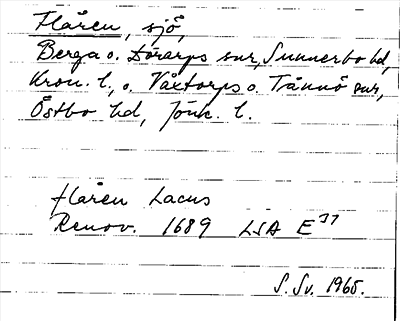 Flåren, sjö,
Berga o. Dörarps snr, Sunnerbo hd,
Kron. l., o. Våxtorps o. Tånnö snr,
Östbo hd, Jönk. l.
flåren Lacus
Renov. 1689 LSA E³⁷
S. Sv. 1965.